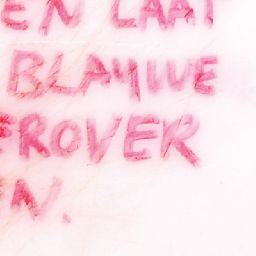 EN LAAT
BLAUWE
ROVER
EN.